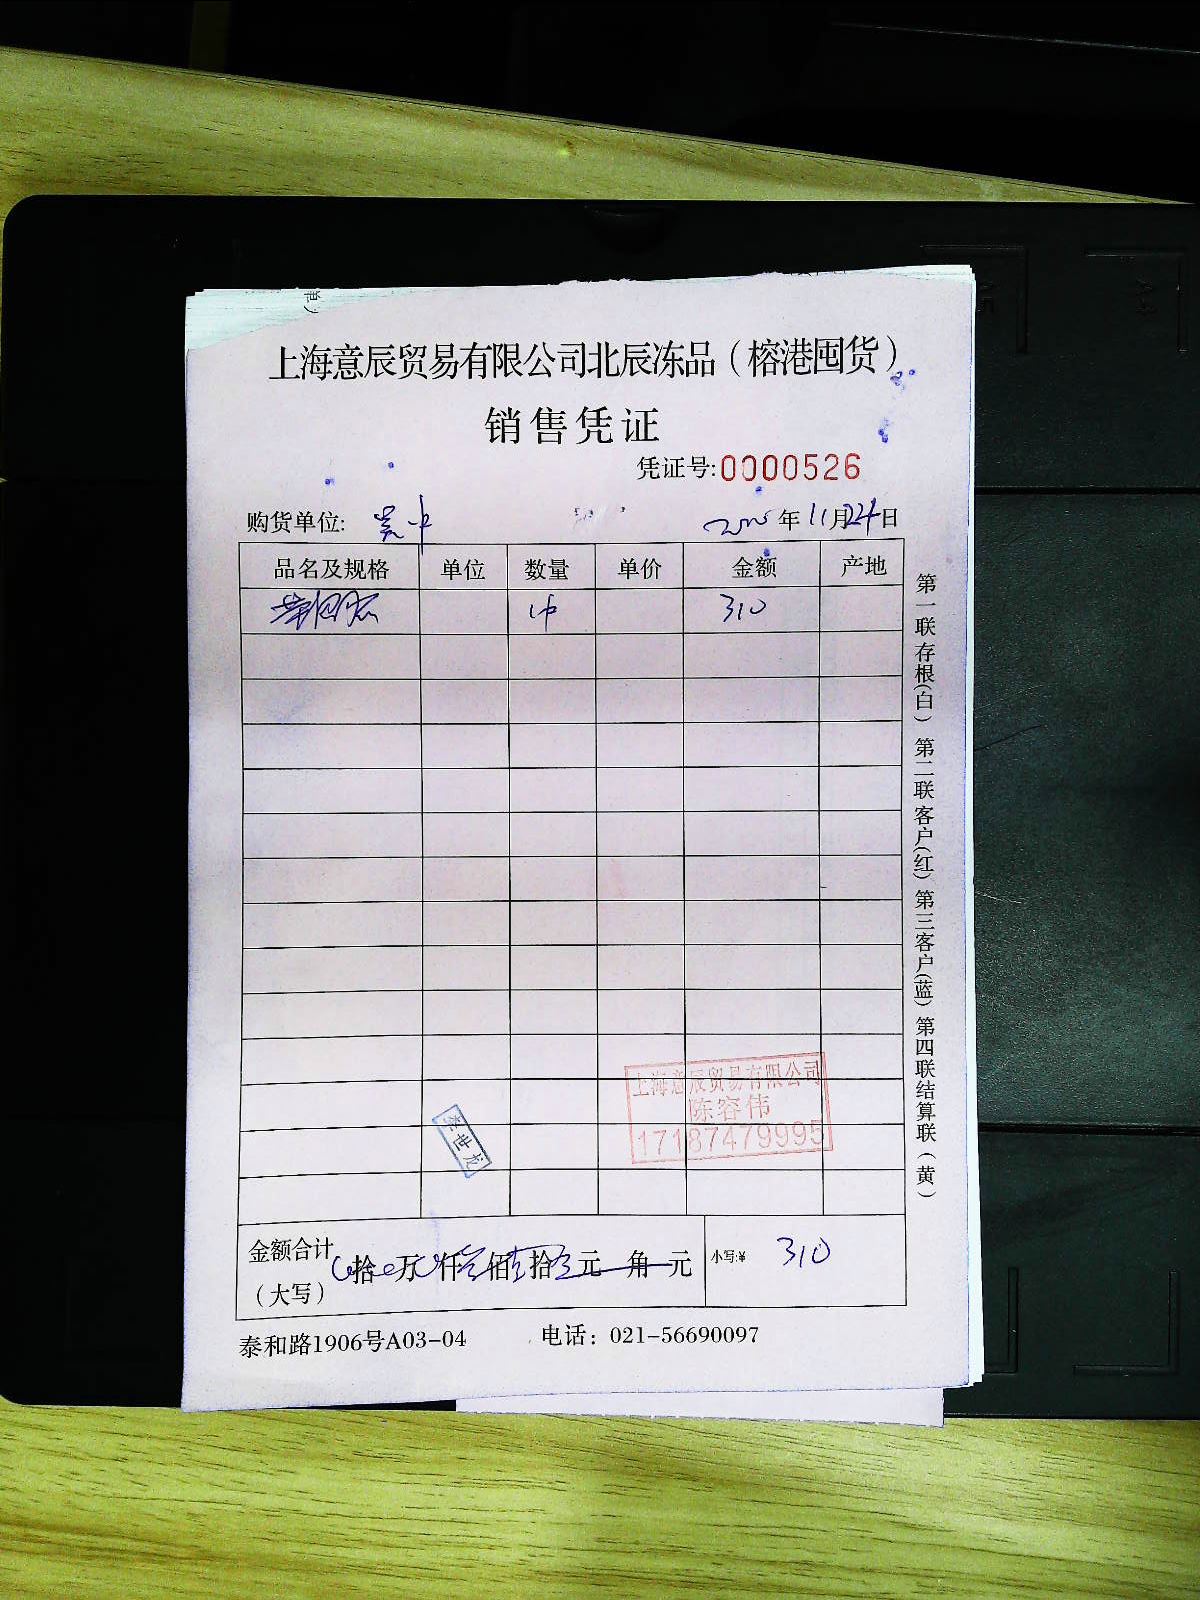 上海意辰贸易有限公司北辰冻品（榕港囤货）
销售凭证
凭证号:0000526
购货单位: 年11月24日
品名及规格 单位 数量 单价 金额 产地
1件 310
上海意辰贸易有限公司
陈容伟
17187479995
李世龙
金额合计（大写） 拾 万 仟 佰 拾 元 角 元 小写:¥ 310
泰和路1906号A03-04 电话：021-56690097
第一联存根(白) 第二联客户(红) 第三客户(蓝) 第四联结算联(黄)